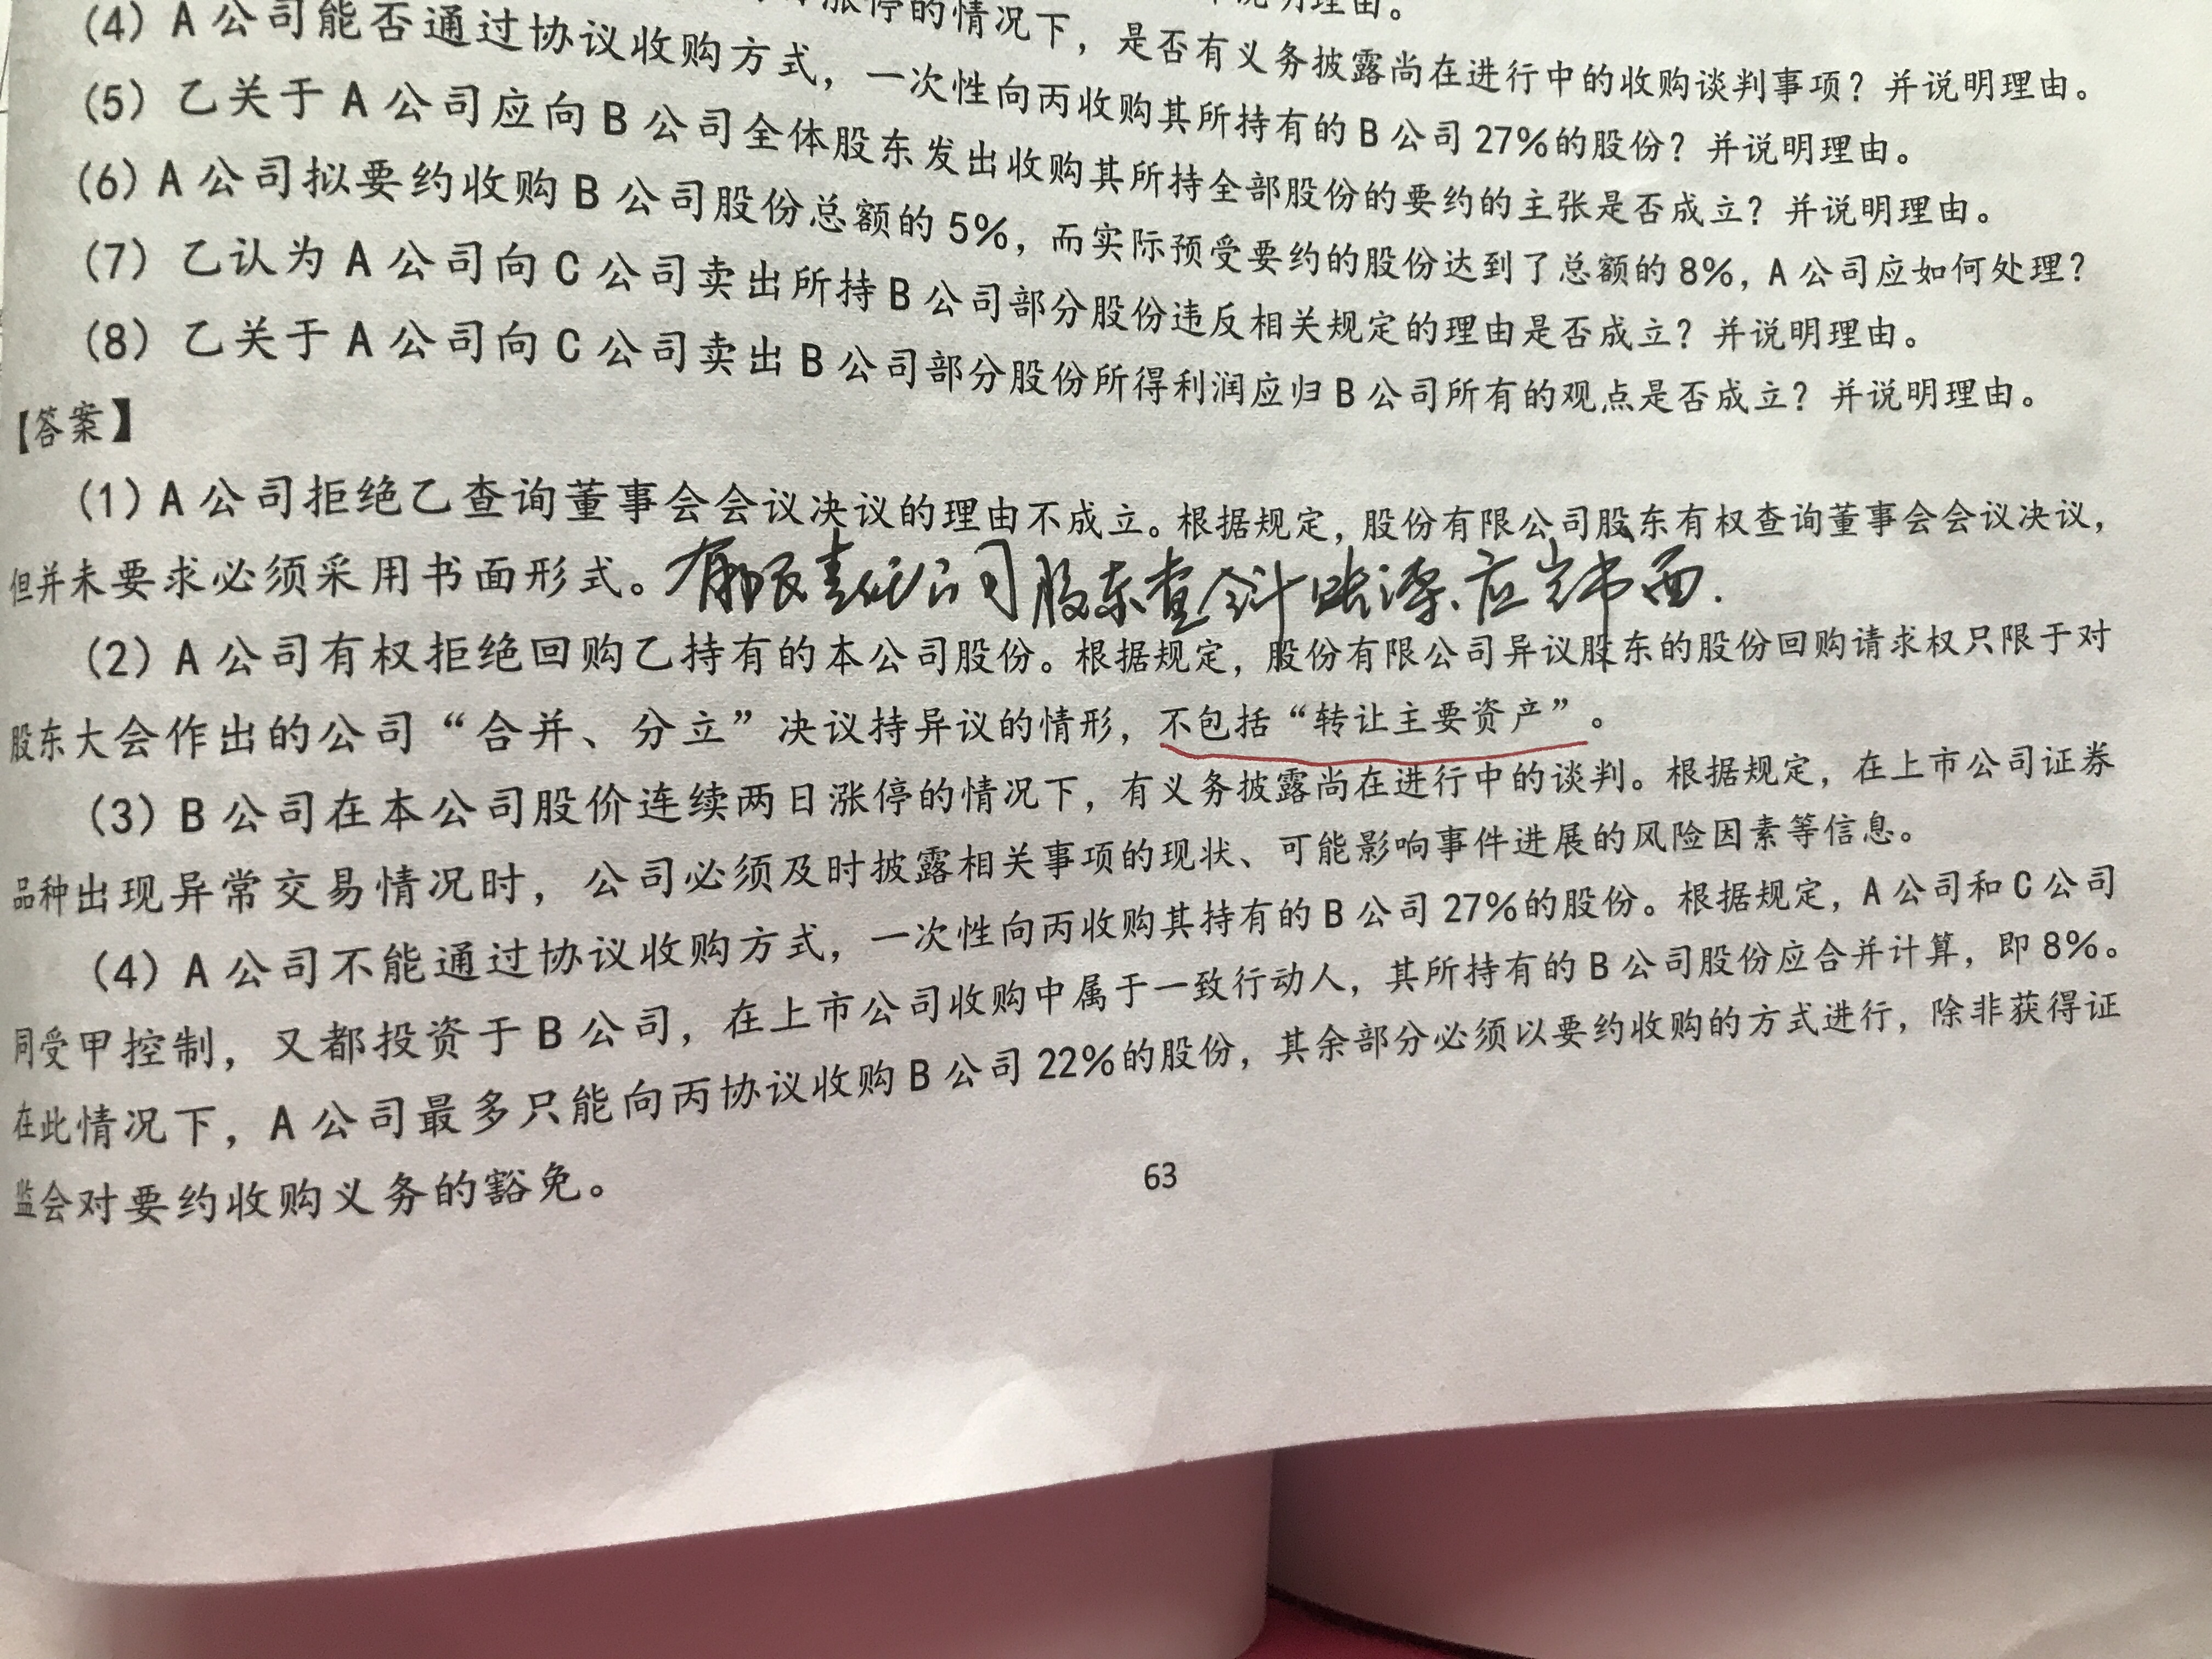 涨停的情况下，是否有义务披露尚在进行中的收购谈判事项？并说明理由。
(4) A 公司能否通过协议收购方式，一次性向丙收购其所持有的 B 公司 27%的股份？并说明理由。
(5) 乙关于 A 公司应向 B 公司全体股东发出收购其所持全部股份的要约的主张是否成立？并说明理由。
(6) A 公司拟要约收购 B 公司股份总额的 5%，而实际预受要约的股份达到了总额的 8%，A 公司应如何处理？
(7) 乙认为 A 公司向 C 公司卖出所持 B 公司部分股份违反相关规定的理由是否成立？并说明理由。
(8) 乙关于 A 公司向 C 公司卖出 B 公司部分股份所得利润应归 B 公司所有的观点是否成立？并说明理由。
【答案】
(1) A 公司拒绝乙查询董事会会议决议的理由不成立。根据规定，股份有限公司股东有权查询董事会会议决议，
但并未要求必须采用书面形式。有限责任公司股东查会计账簿、应当书面.
(2) A 公司有权拒绝回购乙持有的本公司股份。根据规定，股份有限公司异议股东的股份回购请求权只限于对
股东大会作出的公司“合并、分立”决议持异议的情形，不包括“转让主要资产”。
(3) B 公司在本公司股价连续两日涨停的情况下，有义务披露尚在进行中的谈判。根据规定，在上市公司证券
品种出现异常交易情况时，公司必须及时披露相关事项的现状、可能影响事件进展的风险因素等信息。
(4) A 公司不能通过协议收购方式，一次性向丙收购其持有的 B 公司 27%的股份。根据规定，A 公司和 C 公司
同受甲控制，又都投资于 B 公司，在上市公司收购中属于一致行动人，其所持有的 B 公司股份应合并计算，即 8%。
在此情况下，A 公司最多只能向丙协议收购 B 公司 22%的股份，其余部分必须以要约收购的方式进行，除非获得证
监会对要约收购义务的豁免。
63